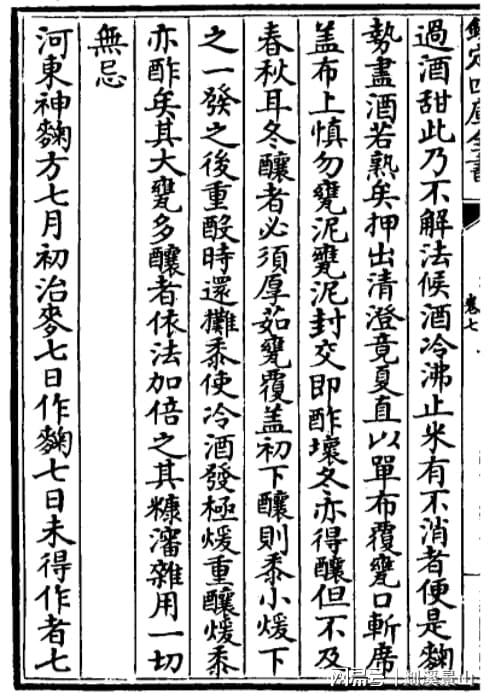 欽定四庫全書
卷七
過酒甜此乃不解法候酒冷沸止米有不消者便是麴
勢盡酒若熟矣押出清澄竟夏直以單布覆甕口斬席
盖布上慎勿甕泥甕泥封交即酢壞冬亦得釀但不及
春秋耳冬釀者必須厚茹甕覆盖初下釀則黍小煖下
之一發之後重酘時還攤黍使冷酒發極煖重釀煖黍
亦酢矣其大甕多釀者依法加倍之其糠瀋雜用一切
無忌
河東神麴方七月初治麥七日作麴七日未得作者七
搜狐号|剡溪景山